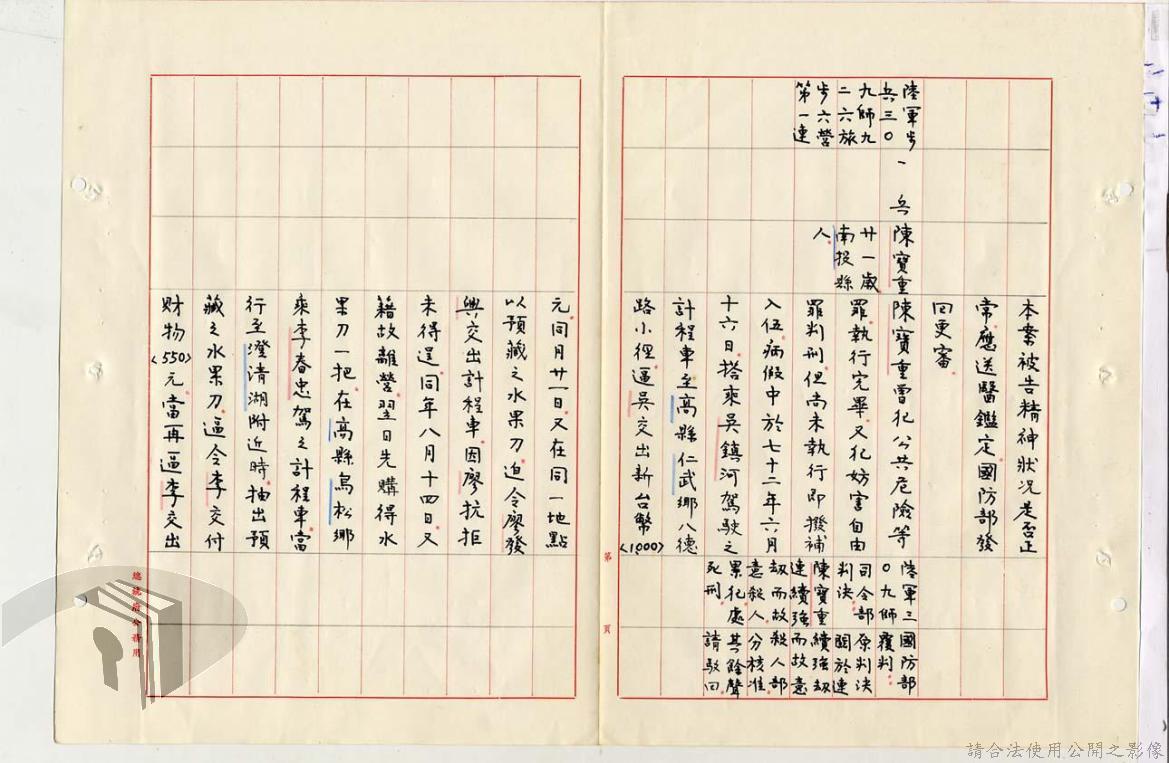 本案被告精神狀況是否正
常應送醫鑑定國防部發
回更審
陸軍步
兵三〇
九師九
二六旅
步六營
第一連
一兵
陳寶重
廿一歲
南投縣
人
陳寶重曾犯公共危險等
罪執行完畢又犯妨害自由
罪判刑但尚未執行即撥補
入伍病假中於七十二年六月
十六日搭乘吳鎮河駕駛之
計程車至高縣仁武鄉八德
路小徑逼吳交出新台幣<1,000>
陸軍三
〇九師
司令部
判決
陳寶重
連續強
劫而故
意殺人
累犯處
死刑
國防部
覆判
原判決
關於連
續強劫
而故意
殺人部
分核准
其餘聲
請駁回
元同月廿一日又在同一地點
以預藏之水果刀迫令廖發
興交出計程車因廖抗拒
未得逞同年八月十四日又
藉故離營翌日先購得水
果刀一把在高縣鳥松鄉
乘李春忠駕之計程車當
行至澄清湖附近時抽出預
藏之水果刀逼令李交付
財物<550>元當再逼李交出
第 頁
總統府公務用
請合法使用公開之影像